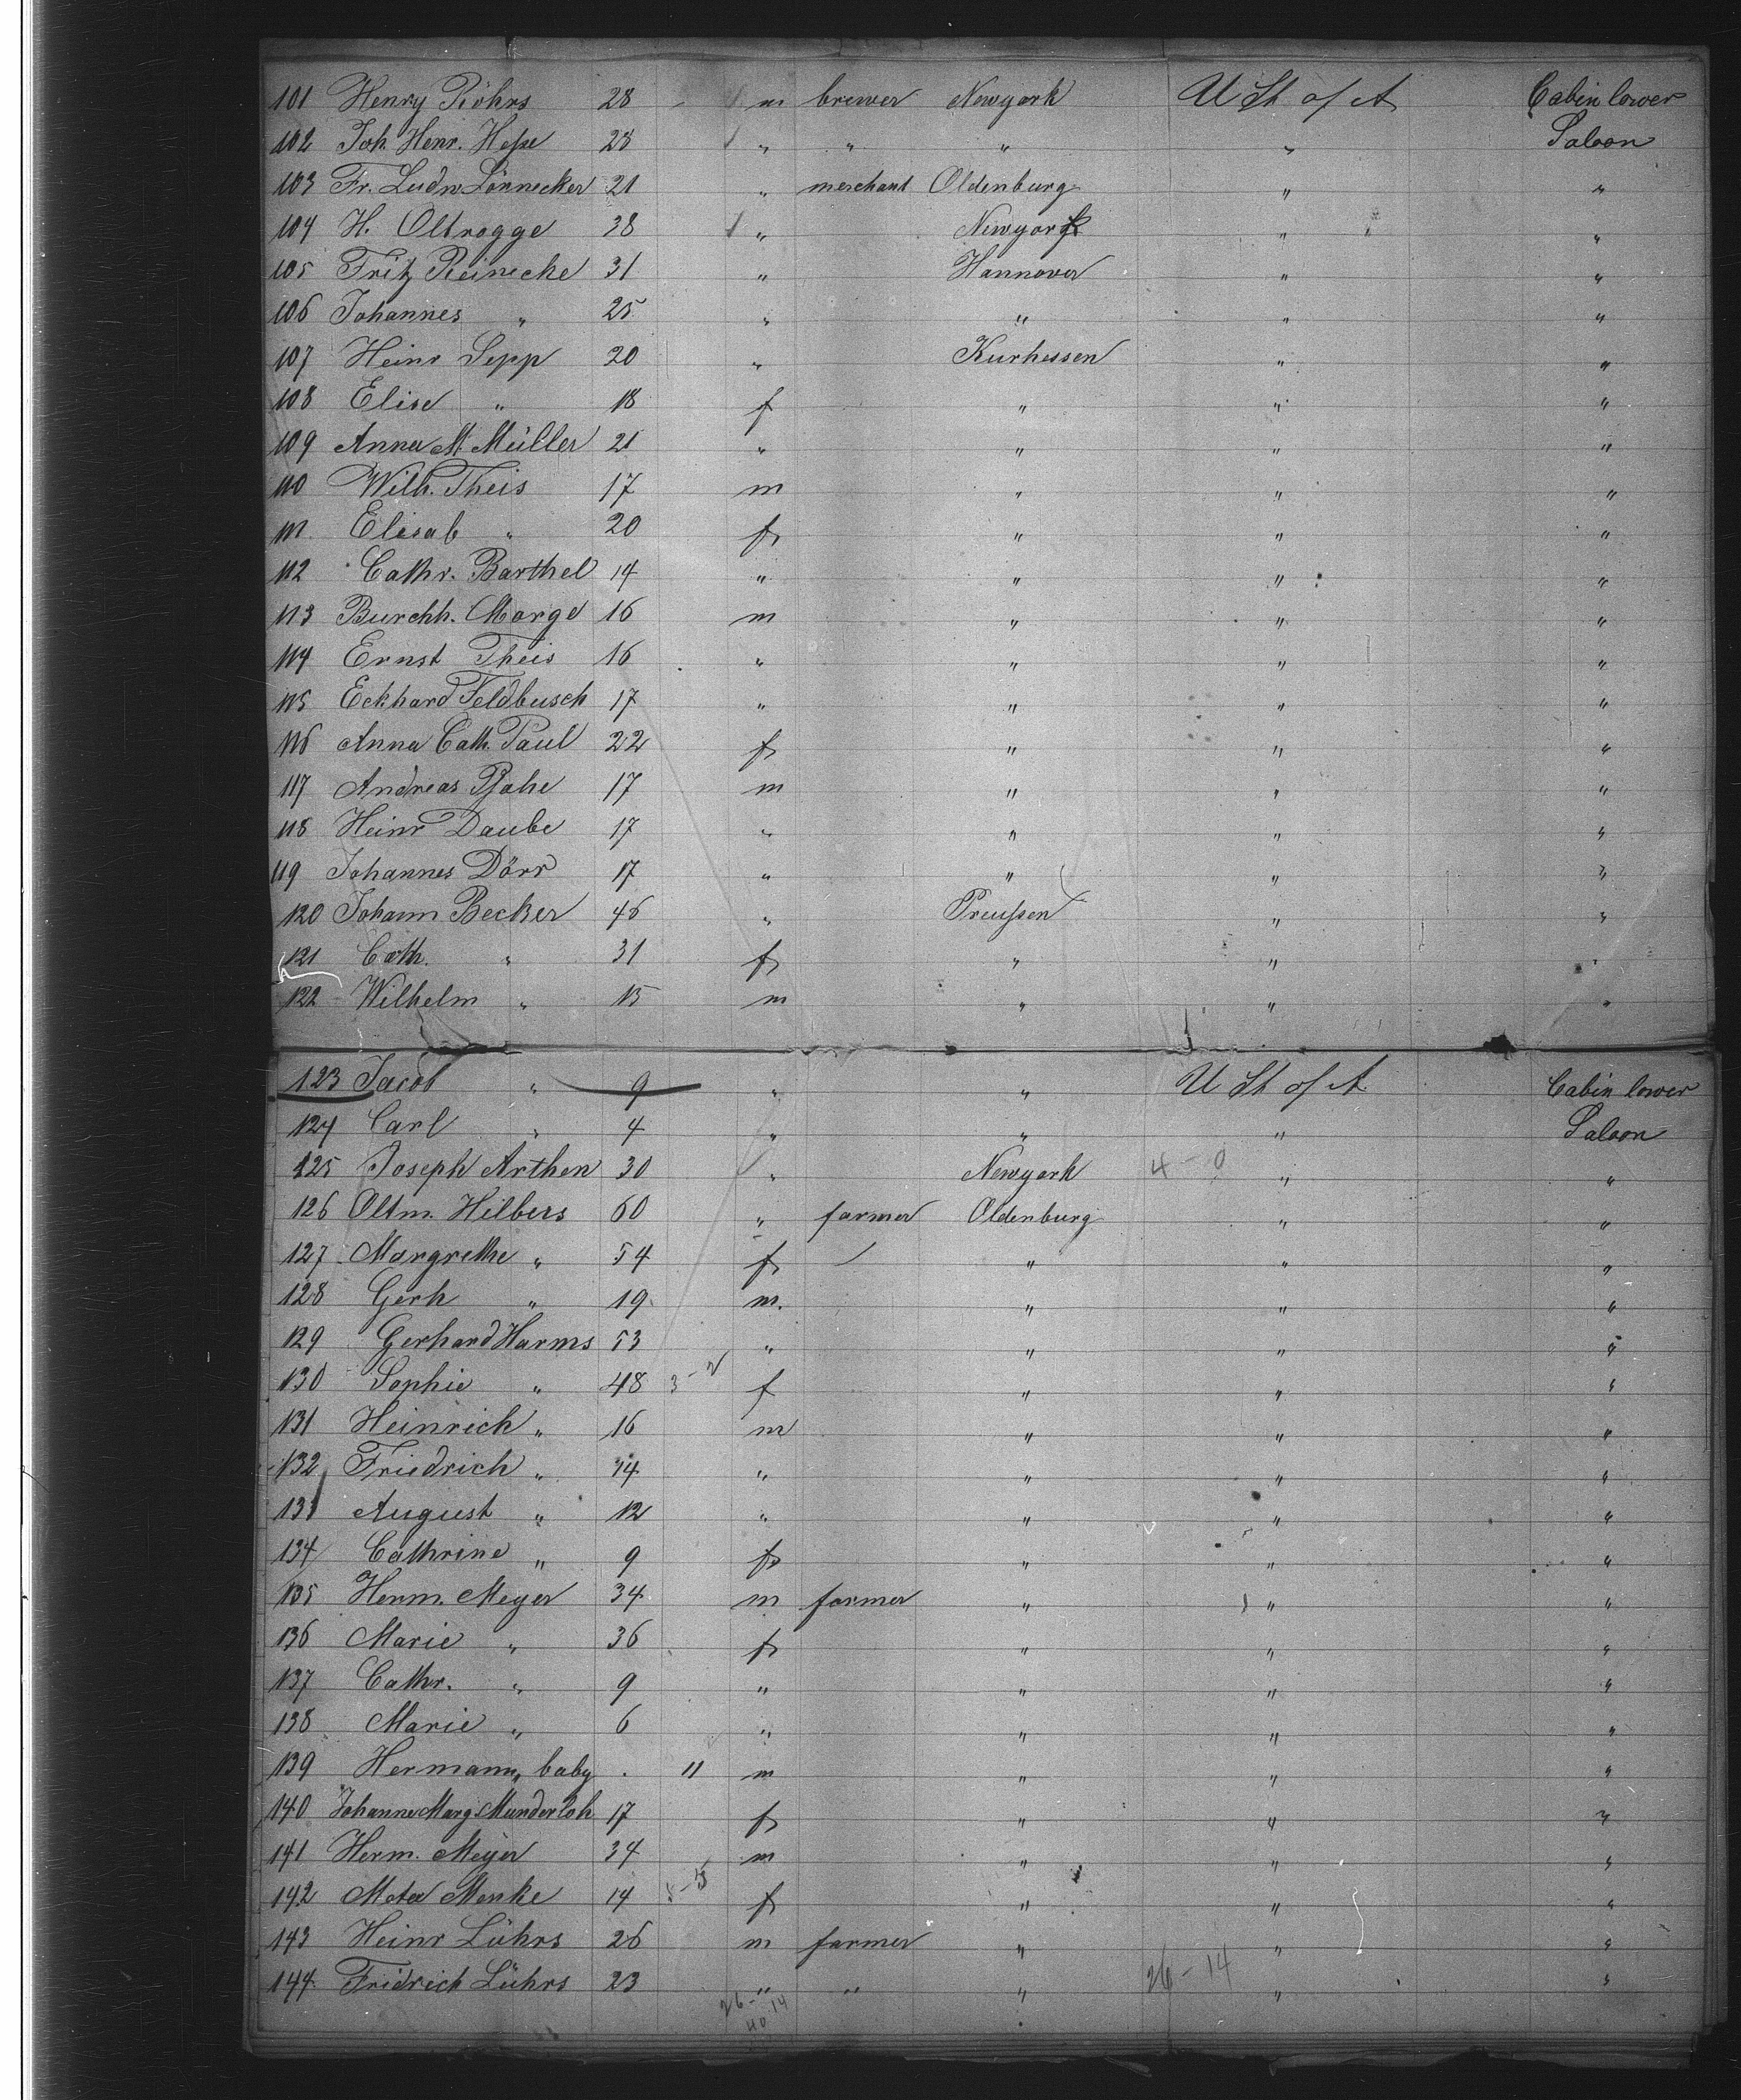 101 Henry Röhrs 28 m brewer Newyork U St of A Cabin lower
102 Joh. Henr. Hesse 28 " " " " Saloon
103 Fr. Ludw Lönnecker 21 " merchant Oldenburg " "
104 H. Oltrogge 38 " Newyork " "
105 Fritz Reinecke 31 " Hannover " "
106 Johannes " 25 " " " "
107 Heinr Sepp 20 " Kurhessen " "
108 Elise " 18 f " " "
109 Anna M. Müller 21 " " " "
110 Wilh. Theis 17 m " " "
111 Elisab " 20 f " " "
112 Cathr. Barthel 14 " " " "
113 Burchh. Marge 16 m " " "
114 Ernst Theis 16 " " " "
115 Eckhard Feldbusch 17 " " " "
116 Anna Cath. Paul 22 f " " "
117 Andreas 17 m " " "
118 Heinr Daube 17 " " " "
119 Johannes Dörr 17 " " " "
120 Johann Becker 46 " Preussen " "
121 Cath. " 31 f " " "
122 Wilhelm " 15 m " " "
123 Jacob " 9 " " U St of A Cabin lower
124 Carl " 4 " " " Saloon
125 Joseph Arthen 30 " Newyork 4-0 " "
126 Oltm. Hilbers 60 " farmer Oldenburg " "
127 Margrethe " 54 f " " "
128 Gerh " 19 m. " " "
129 Gerhard Harms 53 " " " "
130 Sophie " 48 3-2 f " " "
131 Heinrich " 16 m " " "
132 Friedrich " 14 " " " "
133 August " 12 " " " "
134 Cathrine " 9 f " " "
135 Herm. Meyer 34 m farmer " " "
136 Marie " 36 f " " "
137 Cathr. " 9 " " " "
138 Marie " 6 " " " "
139 Hermann " baby . 11 m " " "
140 Johanne Marg. Munderloh 17 f " " "
141 Herm. Meyer 34 m " " "
142 Meta Menke 14 5-5 f " " "
143 Heinr Lührs 26 m farmer " " "
144 Fridrich Lührs 23 " " " 26-14 " "
26-14
40